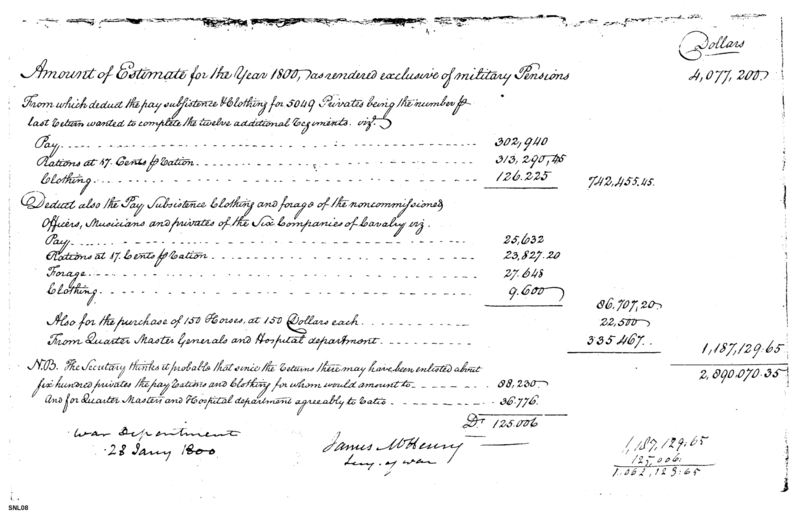 Dollars
Amount of Estimate for the Year 1800, as rendered exclusive of military Pensions 4,077,200
From which deduct the pay subsistence & Clothing for 5049 Privates being the number pr
last Return wanted to complete the twelve additional Regiments. viz.
Pay 302,940
Rations at 17. Cents pr Ration 313,290,45
Clothing 126.225 742,455.45.
Deduct also the Pay Subsistence Clothing and forage of the noncommissioned
Officers, Musicians and privates of the Six Companies of Cavalry viz.
Pay 25,632
Rations at 17. Cents pr Ration 23,827.20
Forage 27.648
Clothing 9.600 86.707,20
Also for the purchase of 150 Horses, at 150 Dollars each 22,500
From Quarter Master Generals and Hospital department 335467.. 1,187,129.65
2,890.070.35
N.B. The Secretary thinks it probable that since the Returns there may have been enlisted about
six hundred privates the pay Rations and Clothing for whom would amount to 88,230.
And for Quarter Masters and Hospital department agreeably to Ratio 36.776.
Dr 125.006
War Department
28 Jany 1800
James McHenry
Secy. of war
1,187,129:65
125,006:
1.062,123:65
SNL08